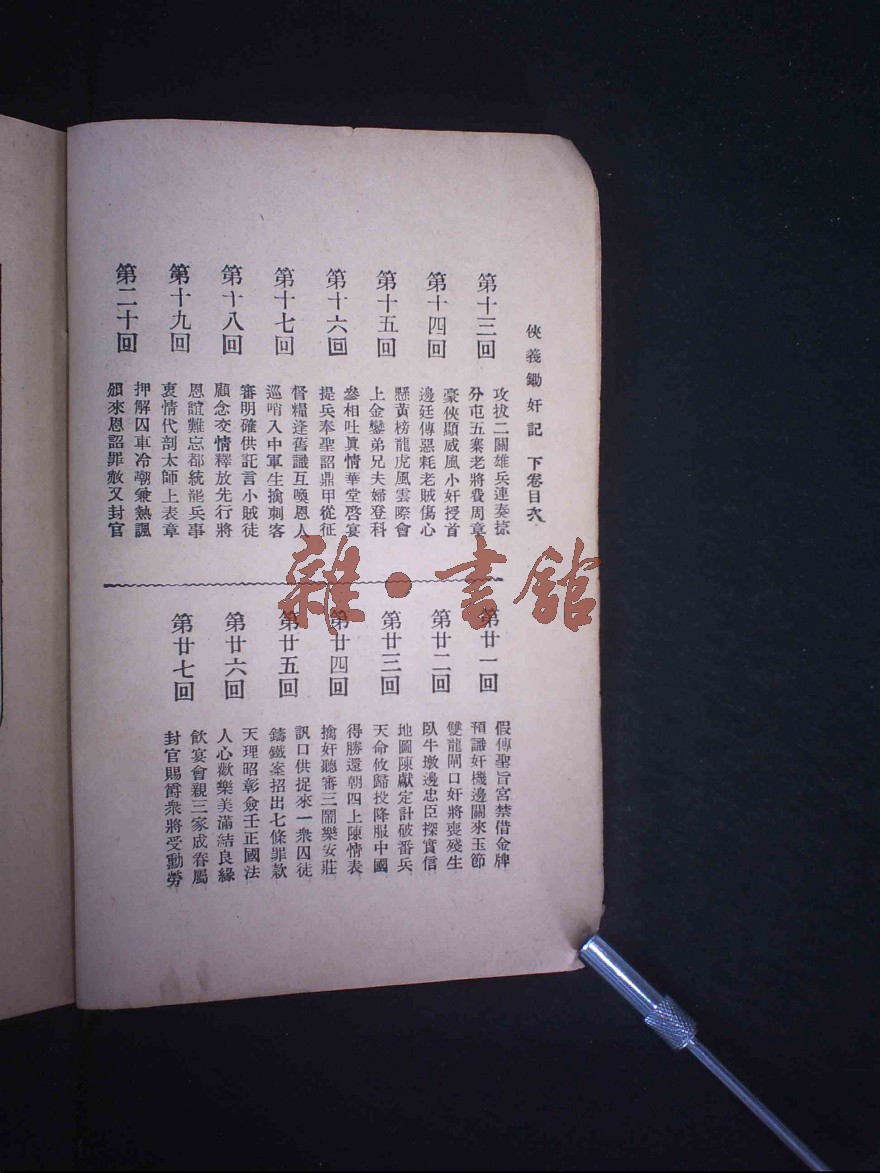 俠義鋤奸記 下卷目次
第十三回
攻拔二關雄兵連奏捷
分屯五寨老將費周章
第十四回
豪俠顯威風小奸授首
邊廷傳惡耗老賊傷心
第十五回
懸黃榜龍虎風雲際會
上金鑾弟兄夫婦登科
第十六回
參相吐眞情華堂啓宴
提兵奉聖詔鼎甲從征
第十七回
督糧逢舊識互喚恩人
巡哨入中軍生擒刺客
第十八回
審明確供託言小賊徒
顧念交情釋放先行將
第十九回
恩誼難忘都統罷兵事
衷情代剖太師上表章
第二十回
押解囚車冷嘲兼熱諷
頒來恩詔罪赦又封官
第廿一回
假傳聖旨宮禁借金牌
預識奸機邊關來玉節
第廿二回
雙龍閘口奸將喪殘生
臥牛墩邊忠臣探實信
第廿三回
地圖陳獻定計破番兵
天命攸歸投降服中國
第廿四回
得勝還朝四上陳情表
擒奸聽審三鬧樂安莊
第廿五回
訊口供捉來一衆囚徒
鑄鐵案招出七條罪款
第廿六回
天理昭彰僉壬正國法
人心歡樂美滿結良緣
第廿七回
飲宴會親三家成眷屬
封官賜爵衆將受勳勞
雜·書館